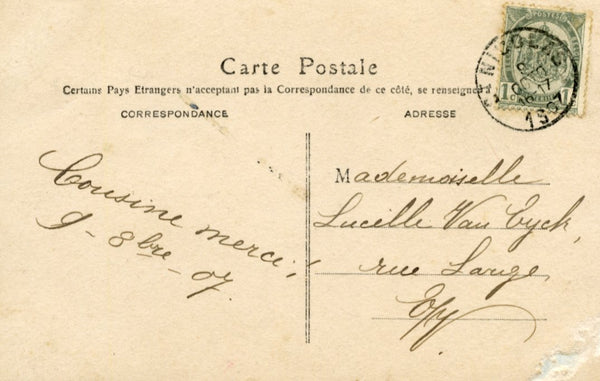 Carte Postale
Certains Pays Etrangers n'acceptant pas la Correspondance de ce côté, se renseigner
CORRESPONDANCE
ADRESSE
Cousine merci!
9 - 8bre - 07.
Mademoiselle
Lucille Van Eyck,
rue Large,
E/V
ST NICOLAS
1907